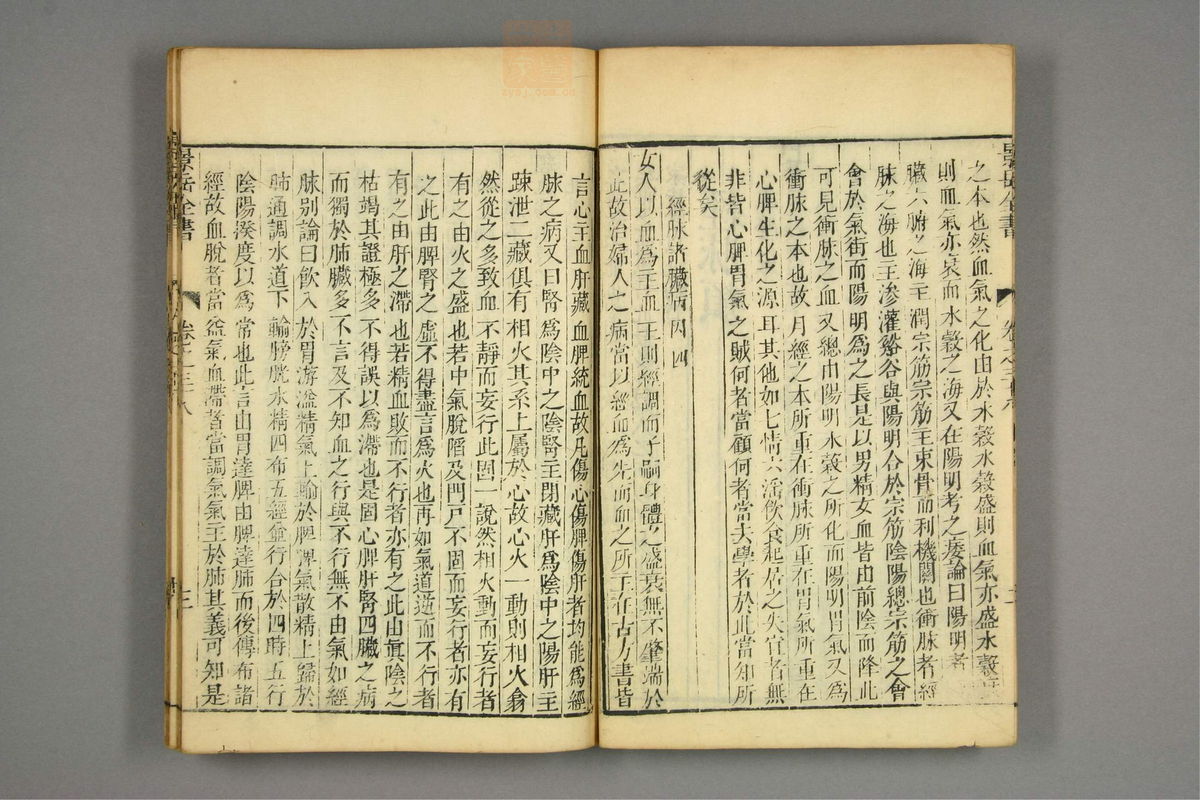 之本也然血氣之化由於水穀水穀盛則血氣亦盛水穀
則血氣亦衰而水穀之海又在陽明考之痿論曰陽明者
臟六腑之海主潤宗筋宗筋主束骨而利機關也衝脉者經
脉之海也主滲灌谿谷與陽明合於宗筋陰陽總宗筋之會
會於氣街而陽明爲之長是以男精女血皆由前陰而降此
可見衝脉之血又總由陽明水穀之所化而陽明胃氣又爲
衝脉之本也故月經之本所重在衝脉所重在胃氣所重在
心脾生化之源耳其他如七情六淫飲食起居之失宜者無
非皆心脾胃氣之賊何者當顧何者當去學者於此當知所
從矣
經脉諸臟病因 四
女人以血爲主血主則經調而子嗣身體之盛衰無不肇端於
此故治婦人之病當以經血爲先而血之所主在古方書皆
言心主血肝藏血脾統血故凡傷心傷脾傷肝者均能爲經
脉之病又曰腎爲陰中之陰腎主閉藏肝爲陰中之陽肝主
踈泄二藏俱有相火其系上屬於心故心火一動則相火翕
然從之多致血不靜而妄行此固一說然相火動而妄行者
有之由火之盛也若中氣脫陷及門戸不固而妄行者亦有
之此由脾腎之虛不得盡言爲火也再如氣道逆而不行者
有之由肝之滯也若精血敗而不行者亦有之此由眞陰之
枯竭其證極多不得誤以爲滯也是固心脾肝腎四臟之病
而獨於肺臟多不言及不知血之行與不行無不由氣如經
脉别論曰飮入於胃游溢精氣上輸於脾脾氣散精上歸於
肺通調水道下輸膀胱水精四布五經並行合於四時五行
陰陽揆度以爲常也此言由胃達脾由脾達肺而後傳布諸
經故血脫者當益氣血滯者當調氣氣主於肺其義可知是
景岳全書
卷之三十八
景岳全書